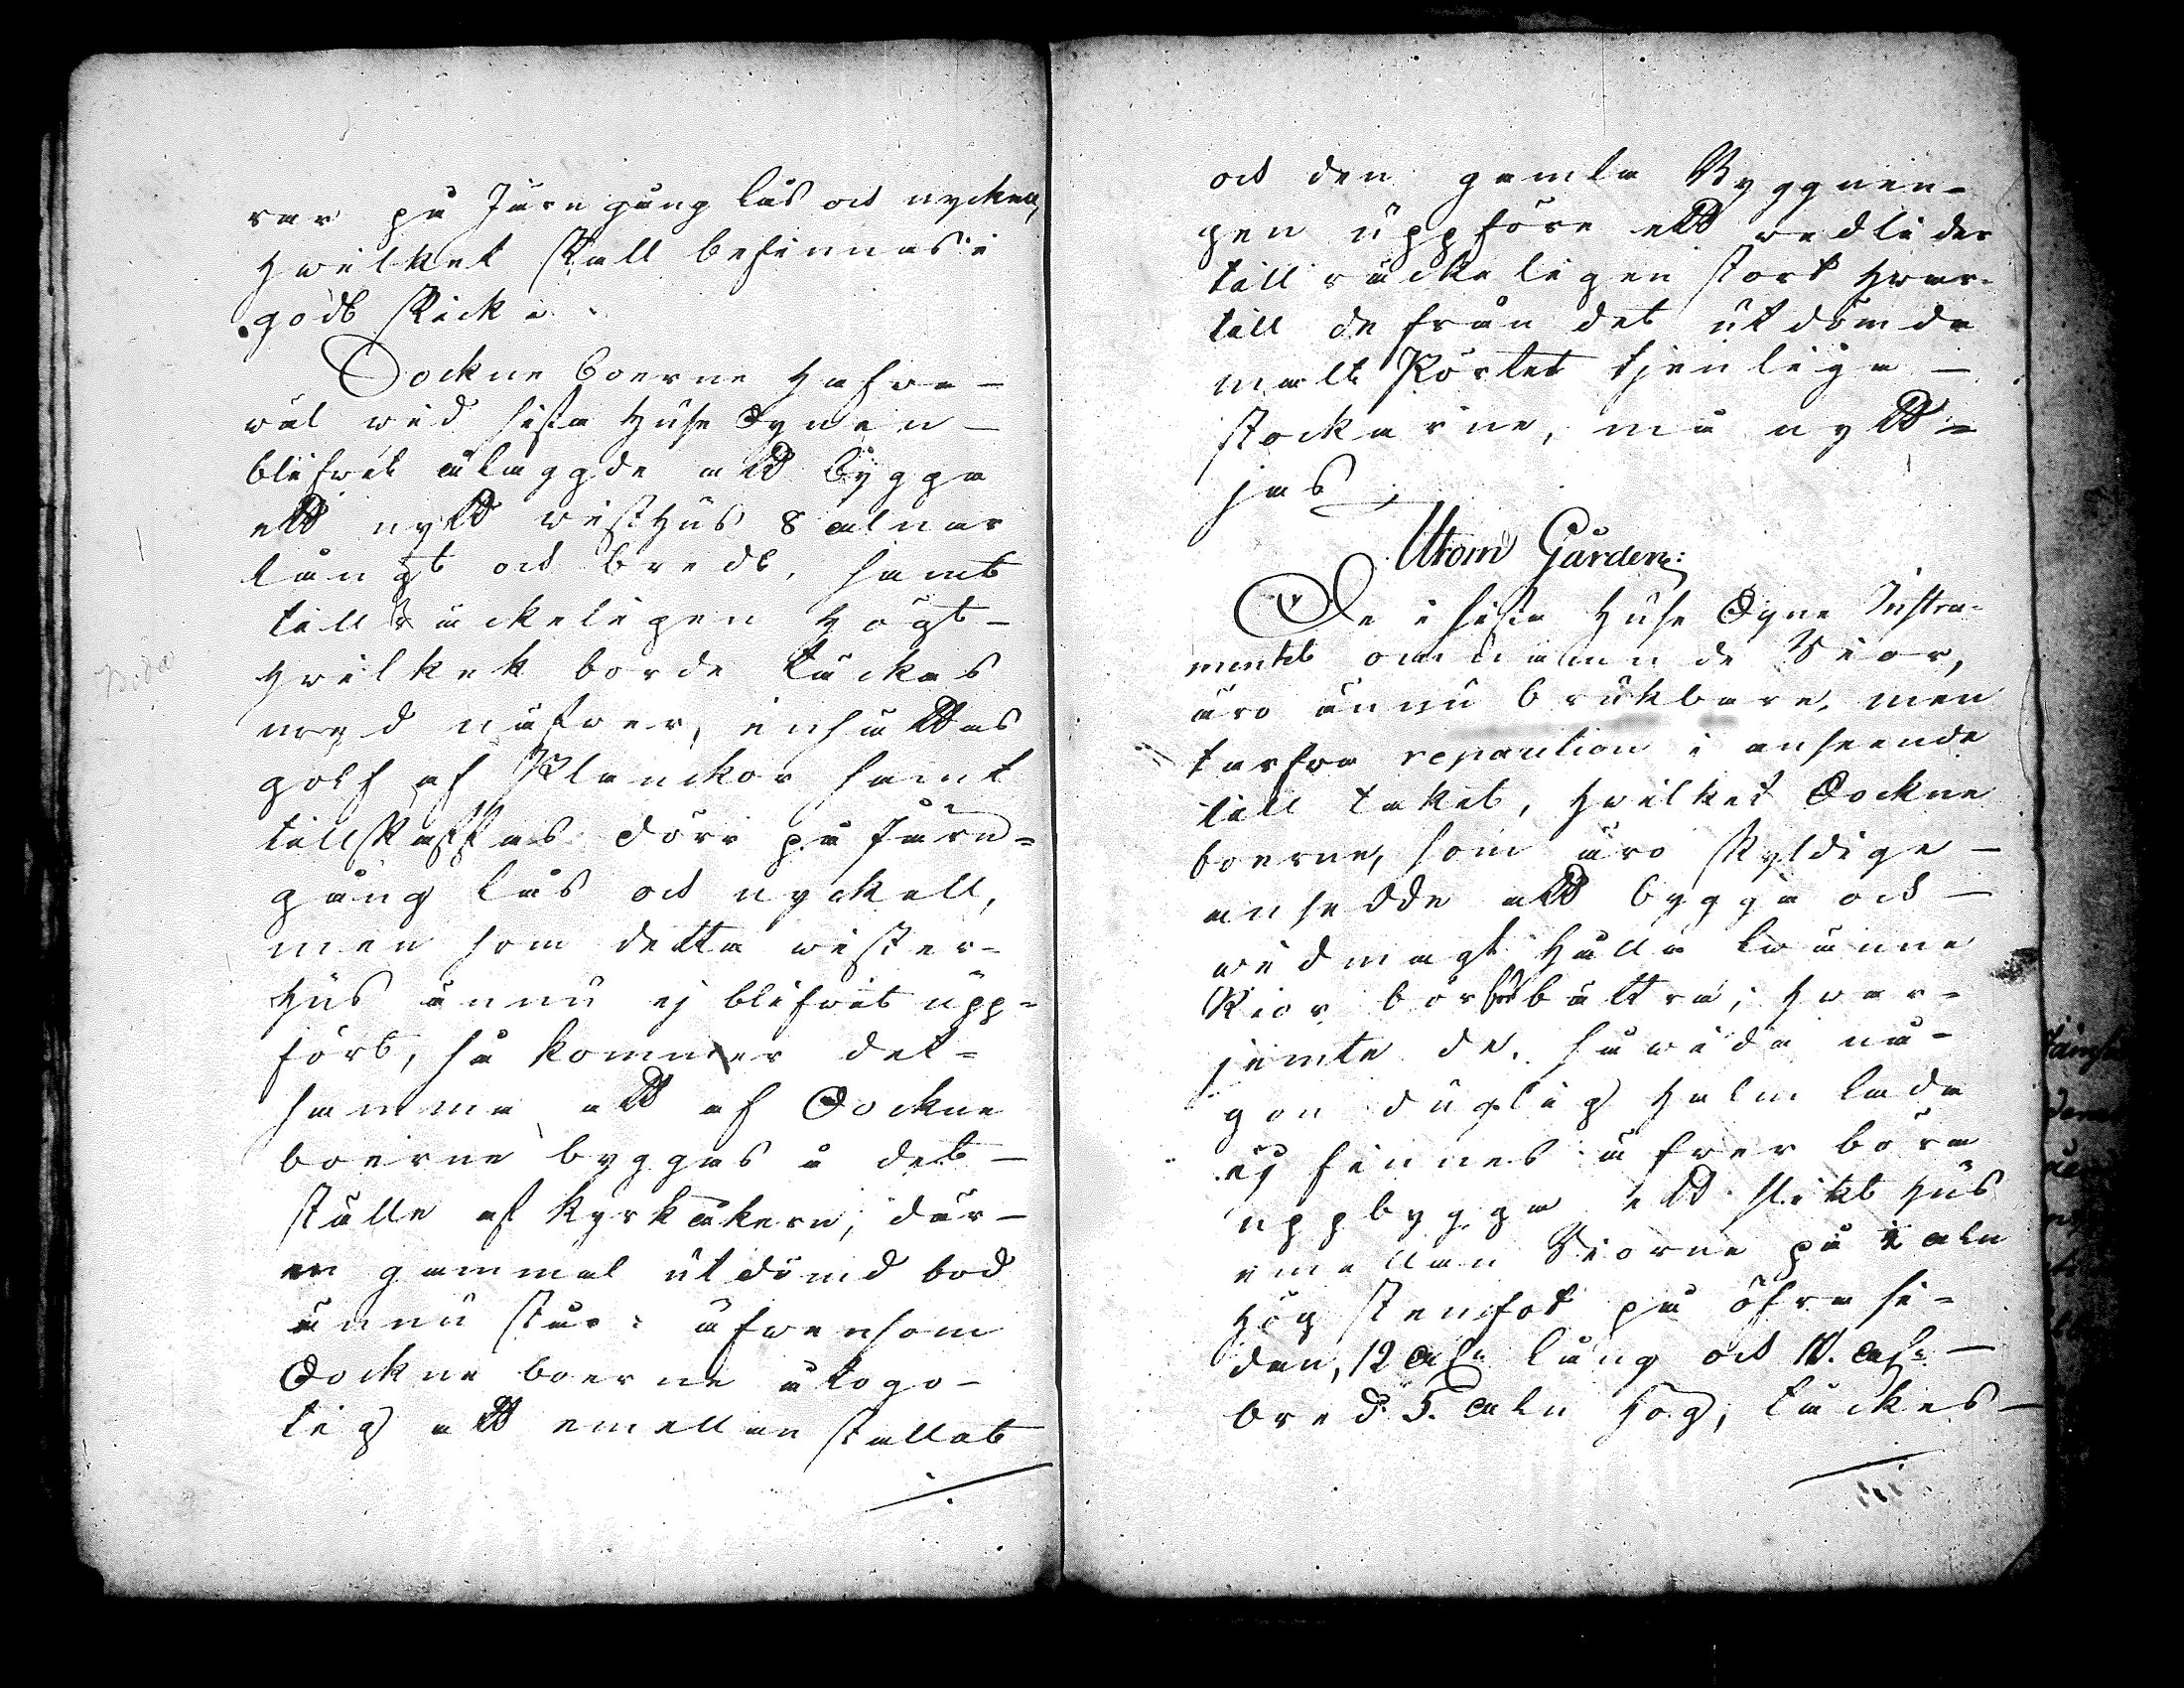 rar på Järn gång lås och nyckell,
hwilket skall befinnas i
godt skick.
Sockne boerne hafwa
wäl wid sista Huse Synen
blifwit ålaggde att bygga
ett nytt wisthus 8 alnar
långt och bredt, samt
tillräckeligen högt
hwilket borde täckas
med näfwer, insättas
golf af Planckor samt
tillskaffas dörr på Järn-
gång lås och nyckell,
men som detta wister-
hus ännu ej blifwit upp-
fört, så kommer det-
samma att af Sockne
boerne byggas å det
ställe af kyrkåkern, där
en gammal utdömd bod
ännu står: äfwensom
Sockne boerne åtogo
sig att emellan stallet
Boda
och den gamla Byggnin-
gen uppföra ett wedlider
tillräckeligen stort hwar-
till de från det utdömda
malt Körtet tjenliga
stockarne, må nytt-
jas;
Utom Gården:
De i sista Huse Syne Instru-
mentet omnämnde Rior,
äro ännu brukbare, men
tarfwa reparation i anseende
till taket, hwilket Sockne
boerne, som äro skyldige
ansedde att bygga och
widmagt hålla twänne
Rior bör förbättra; hwar-
jemte de, såwida nå-
gon duglig halm lada
ej finnes äfwen böra
uppbygga ett slikt hus
emellan Riorne på 1 aln
hög stenfot på öfra si-
dan, 12 aln lång och 10. aln
bred. 5. aln hög, täckes